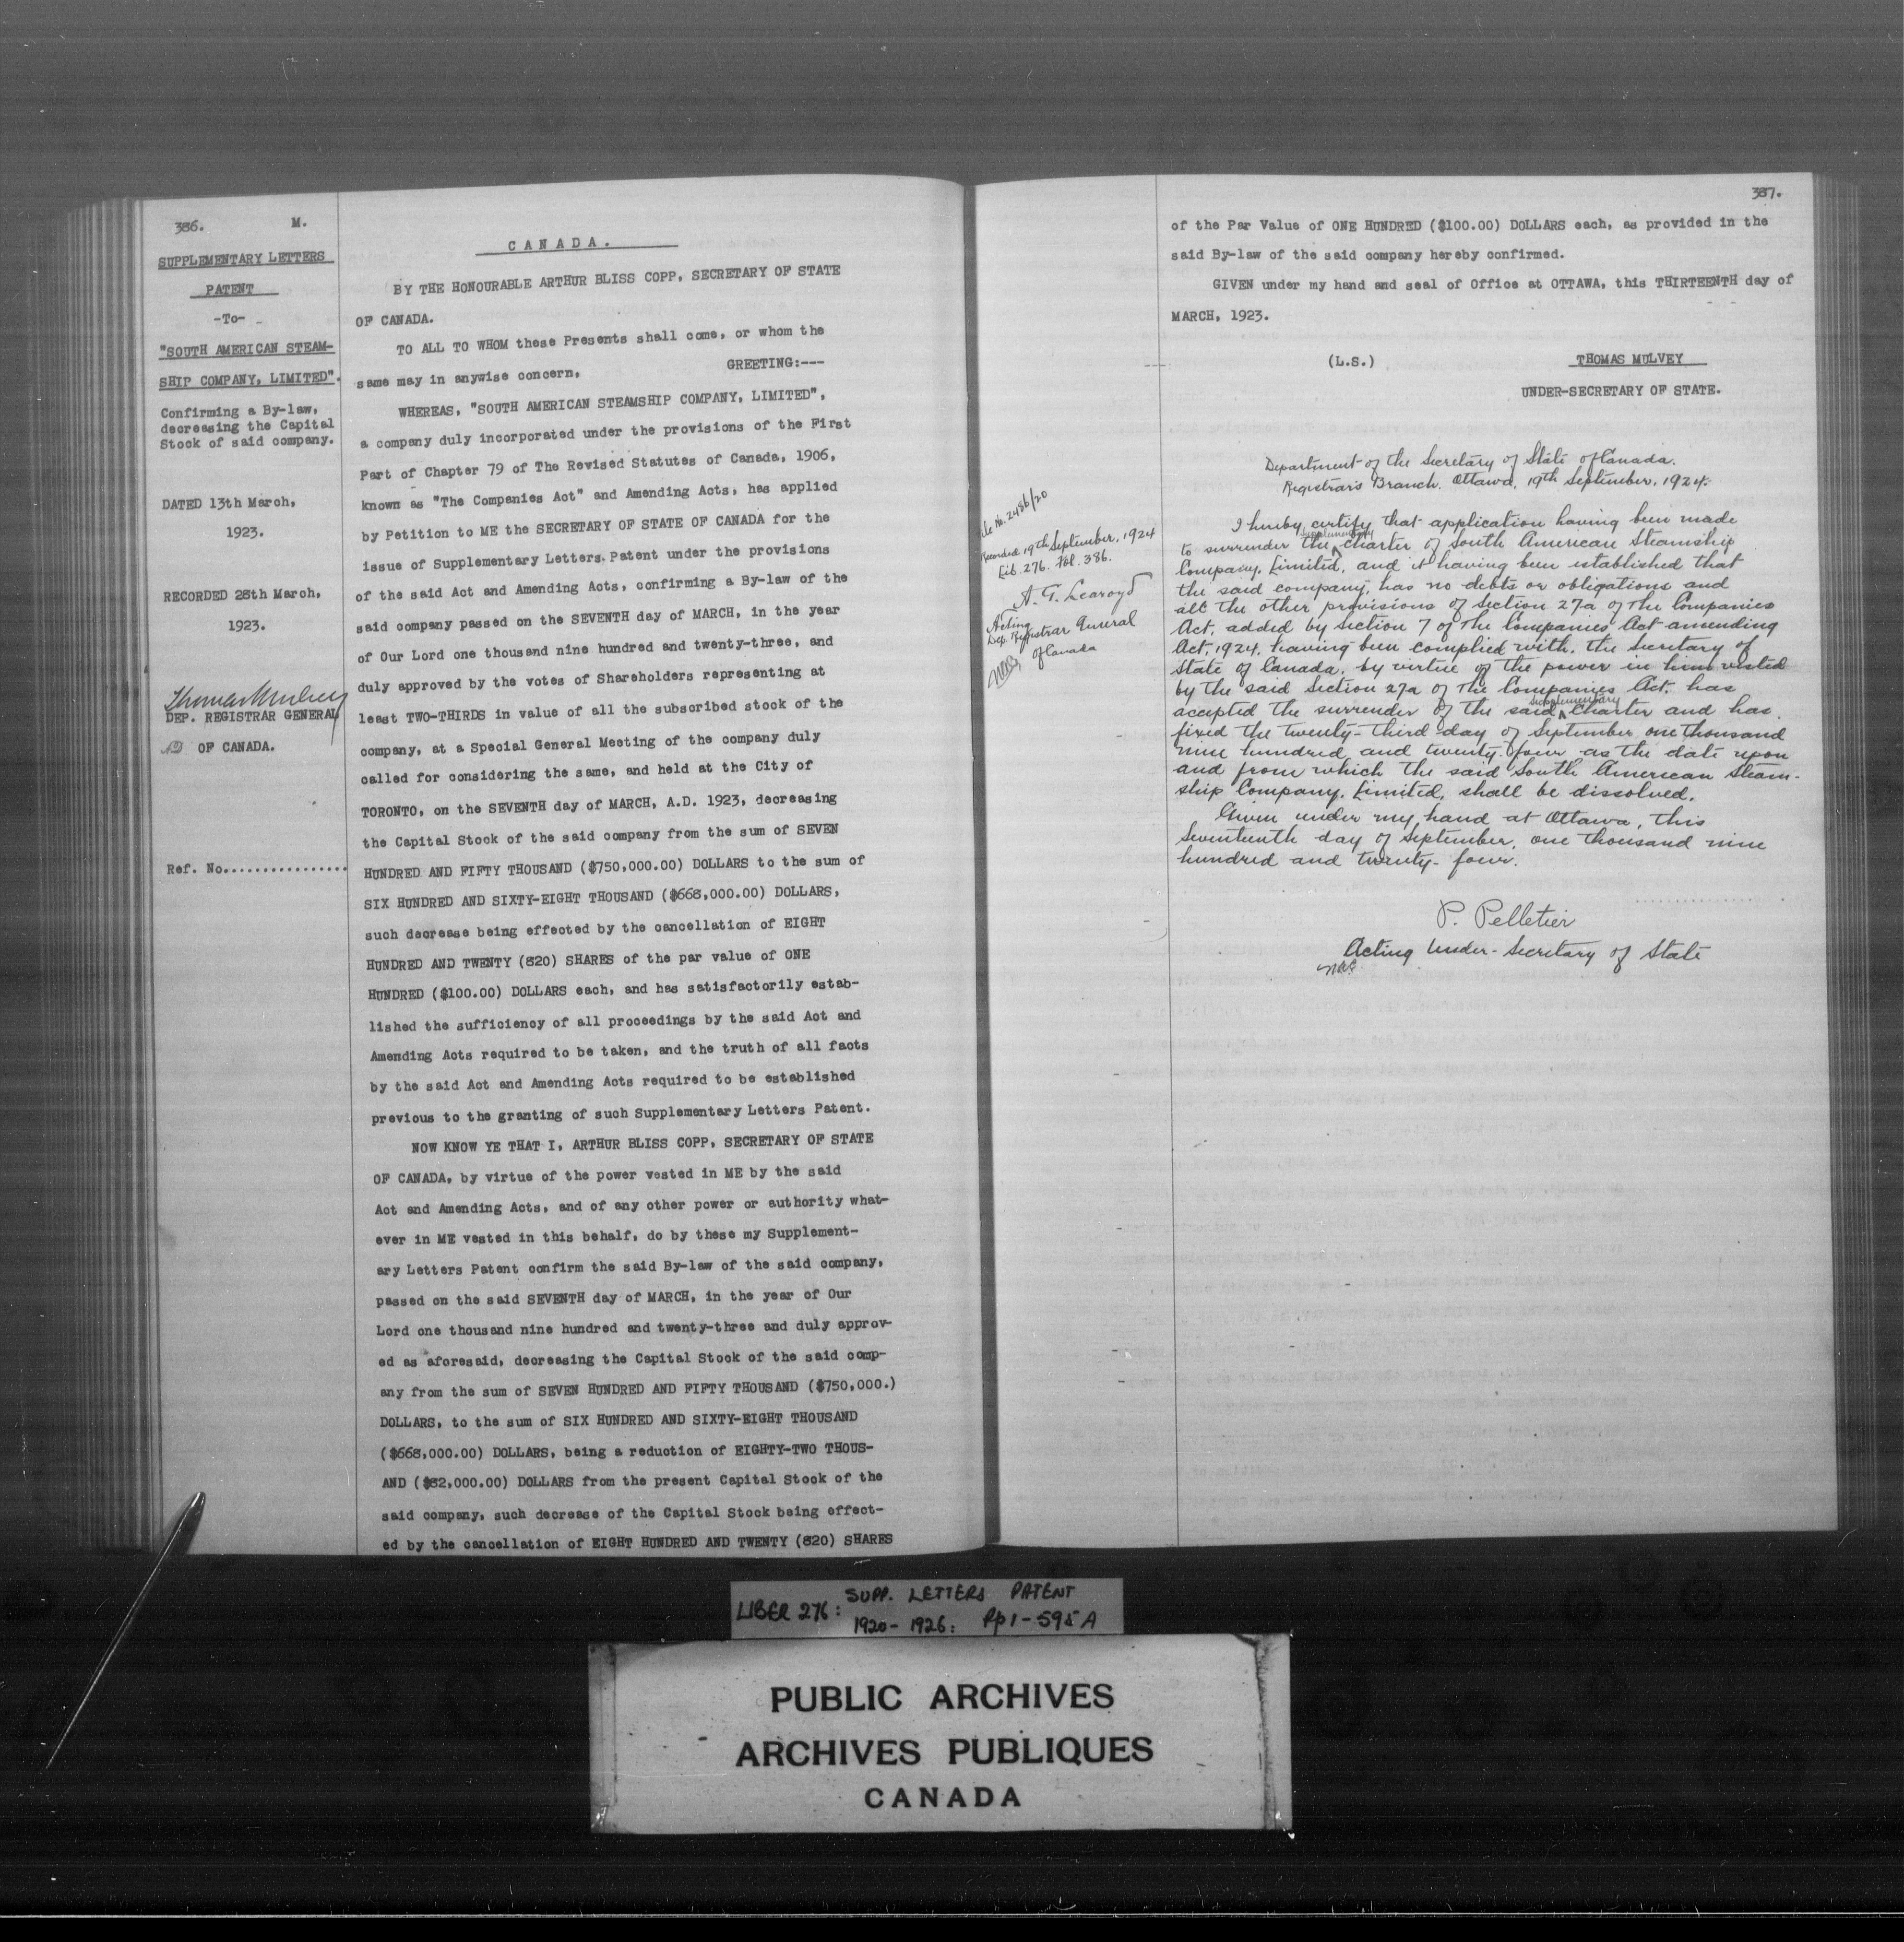 386. M.
SUPPLEMENTARY LETTERS
PATENT
-To-
"SOUTH AMERICAN STEAM-
SHIP COMPANY, LIMITED".
Confirming a By-law,
decreasing the Capital
Stock of said company.
DATED 13th March,
1923.
RECORDED 28th March,
1923.
Thomas Mulvey
DEP. REGISTRAR GENERAL
OF CANADA.
Ref. No................
CANADA.
BY THE HONOURABLE ARTHUR BLISS COPP, SECRETARY OF STATE
OF CANADA.
TO ALL TO WHOM these Presents shall come, or whom the
same may in anywise concern, GREETING:---
WHEREAS, "SOUTH AMERICAN STEAMSHIP COMPANY, LIMITED",
a company duly incorporated under the provisions of the First
Part of Chapter 79 of The Revised Statutes of Canada, 1906,
known as "The Companies Act" and Amending Acts, has applied
by Petition to ME the SECRETARY OF STATE OF CANADA for the
issue of Supplementary Letters Patent under the provisions
of the said Act and Amending Acts, confirming a By-law of the
said company passed on the SEVENTH day of MARCH, in the year
of Our Lord one thousand nine hundred and twenty-three, and
duly approved by the votes of Shareholders representing at
least TWO-THIRDS in value of all the subscribed stock of the
company, at a Special General Meeting of the company duly
called for considering the same, and held at the City of
TORONTO, on the SEVENTH day of MARCH, A.D. 1923, decreasing
the Capital Stock of the said company from the sum of SEVEN
HUNDRED AND FIFTY THOUSAND ($750,000.00) DOLLARS to the sum of
SIX HUNDRED AND SIXTY-EIGHT THOUSAND ($668,000.00) DOLLARS,
such decrease being effected by the cancellation of EIGHT
HUNDRED AND TWENTY (820) SHARES of the par value of ONE
HUNDRED ($100.00) DOLLARS each, and has satisfactorily estab-
lished the sufficiency of all proceedings by the said Act and
Amending Acts required to be taken, and the truth of all facts
by the said Act and Amending Acts required to be established
previous to the granting of such Supplementary Letters Patent.
NOW KNOW YE THAT I, ARTHUR BLISS COPP, SECRETARY OF STATE
OF CANADA, by virtue of the power vested in ME by the said
Act and Amending Acts, and of any other power or authority what-
ever in ME vested in this behalf, do by these my Supplement-
ary Letters Patent confirm the said By-law of the said company,
passed on the said SEVENTH day of MARCH, in the year of Our
Lord one thousand nine hundred and twenty-three and duly approv-
ed as aforesaid, decreasing the Capital Stock of the said comp-
any from the sum of SEVEN HUNDRED AND FIFTY THOUSAND ($750,000.)
DOLLARS, to the sum of SIX HUNDRED AND SIXTY-EIGHT THOUSAND
($668,000.00) DOLLARS, being a reduction of EIGHTY-TWO THOUS-
AND ($82,000.00) DOLLARS from the present Capital Stock of the
said company, such decrease of the Capital Stock being effect-
ed by the cancellation of EIGHT HUNDRED AND TWENTY (820) SHARES
387.
of the Par Value of ONE HUNDRED ($100.00) DOLLARS each, as provided in the
said By-law of the said company hereby confirmed.
GIVEN under my hand and seal of Office at OTTAWA, this THIRTEENTH day of
MARCH, 1923.
(L.S.) THOMAS MULVEY
UNDER-SECRETARY OF STATE.
No. 2486/20
Recorded 19th September, 1924
Lib. 276. Fol. 386.
A. T. Learoyd
Acting
Dep. Registrar General
of Canada
Department of the Secretary of State of Canada.
Registrar's Branch. Ottawa, 19th September, 1924.
I hereby certify that application having been made
to surrender the supplementary charter of South American Steamship
Company, Limited, and it having been established that
the said company has no debts or obligations and
all the other provisions of Section 27a of The Companies
Act, added by Section 7 of The Companies Act amending
Act, 1924, having been complied with, the Secretary of
State of Canada, by virtue of the power in him vested
by the said Section 27a of The Companies Act, has
accepted the surrender of the said supplementary charter and has
fixed the twenty-third day of September one thousand
nine hundred and twenty four as the date upon
and from which the said South American Steam-
ship Company, Limited, shall be dissolved.
Given under my hand at Ottawa, this
seventeenth day of September, one thousand nine
hundred and twenty-four.
P. Pelletier
Acting Under-Secretary of State
LIBER 276: SUPP. LETTERS PATENT
1920-1926: Pp 1-595A
PUBLIC ARCHIVES
ARCHIVES PUBLIQUES
CANADA